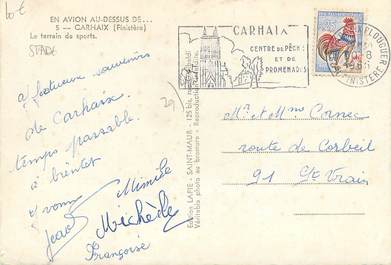 10 €
EN AVION AU-DESSUS DE...
5 — CARHAIX (Finistère)
Le terrain de sports.
STADE
affectueux souvenirs
de Carhaix.
temps passable.
à bientôt
Yvonne Mimile
Jean Michèle
Françoise
29
Edition LAPIE - SAINT-MAUR
Véritable photo au bromure - Reproduction
CARHAIX
CENTRE DE PÊCHE
ET DE
PROMENADES
PLOUGUER
FINISTÈRE
Mr et Mme Cornec
route de Corbeil
91 St Vrain